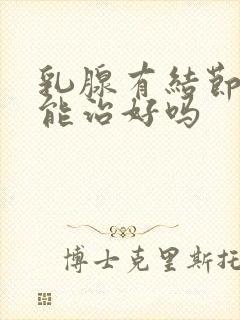 乳腺有結節
能治好吗
博士克里斯托